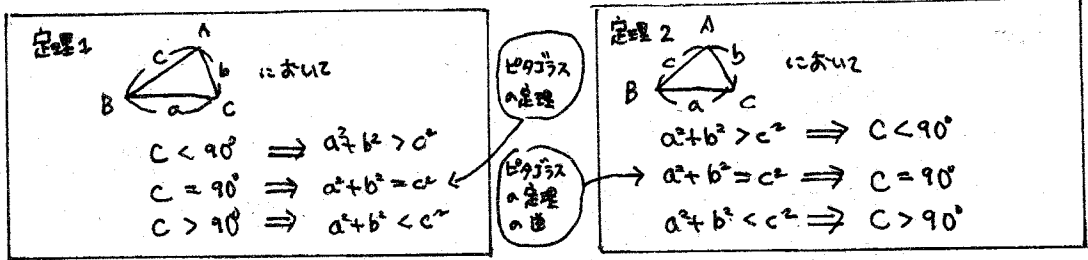 定理1
A
c
b
B
a
C
において
C < 90° ⟹ a²+b² > c²
C = 90° ⟹ a²+b² = c²
C > 90° ⟹ a²+b² < c²
ピタゴラス
の定理
ピタゴラス
の定理
の逆
定理2
A
c
b
B
a
C
において
a²+b² > c² ⟹ C < 90°
a²+b² = c² ⟹ C = 90°
a²+b² < c² ⟹ C > 90°